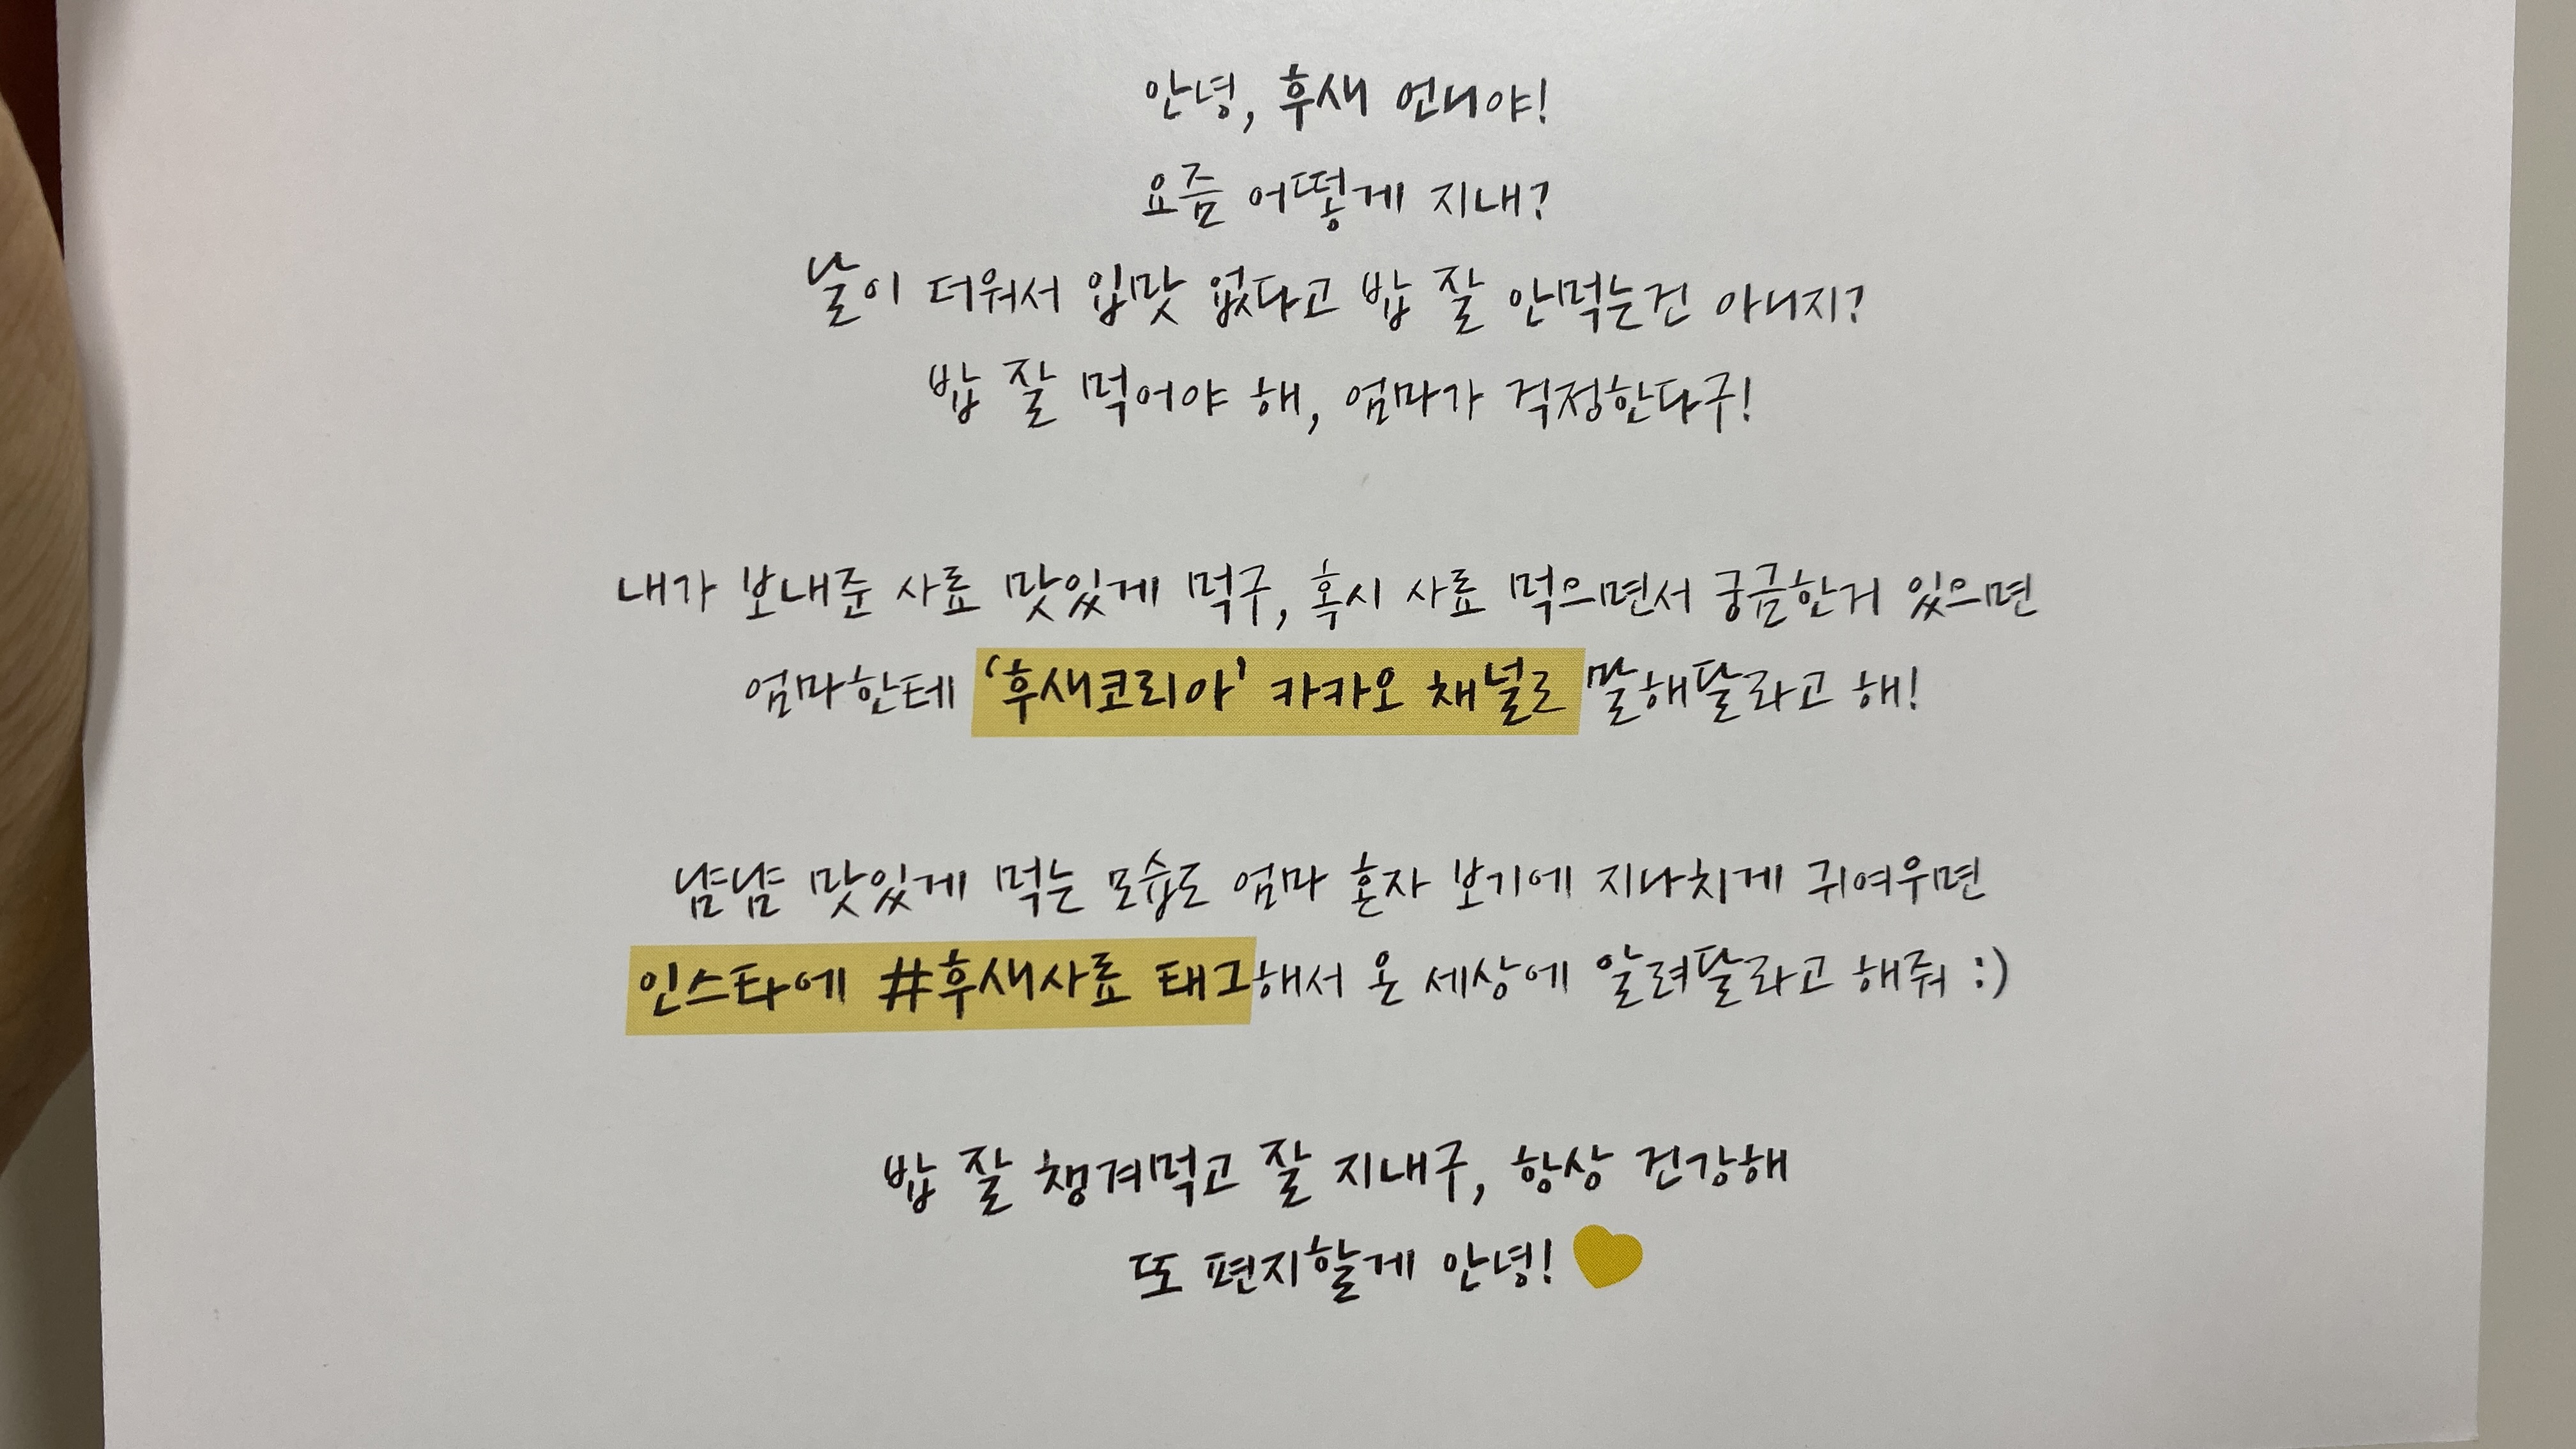 안녕, 후새 언니야!
요즘 어떻게 지내?
날이 더워서 입맛 없다고 밥 잘 안먹는건 아니지?
밥 잘 먹어야 해, 엄마가 걱정한다구!
내가 보내준 사료 맛있게 먹구, 혹시 사료 먹으면서 궁금한거 있으면
엄마한테 '후새코리아' 카카오 채널로 말해달라고 해!
냠냠 맛있게 먹는 모습도 엄마 혼자 보기에 지나치게 귀여우면
인스타에 #후새사료 태그해서 온 세상에 알려달라고 해줘 :)
밥 잘 챙겨먹고 잘 지내구, 항상 건강해
또 편지할게 안녕!